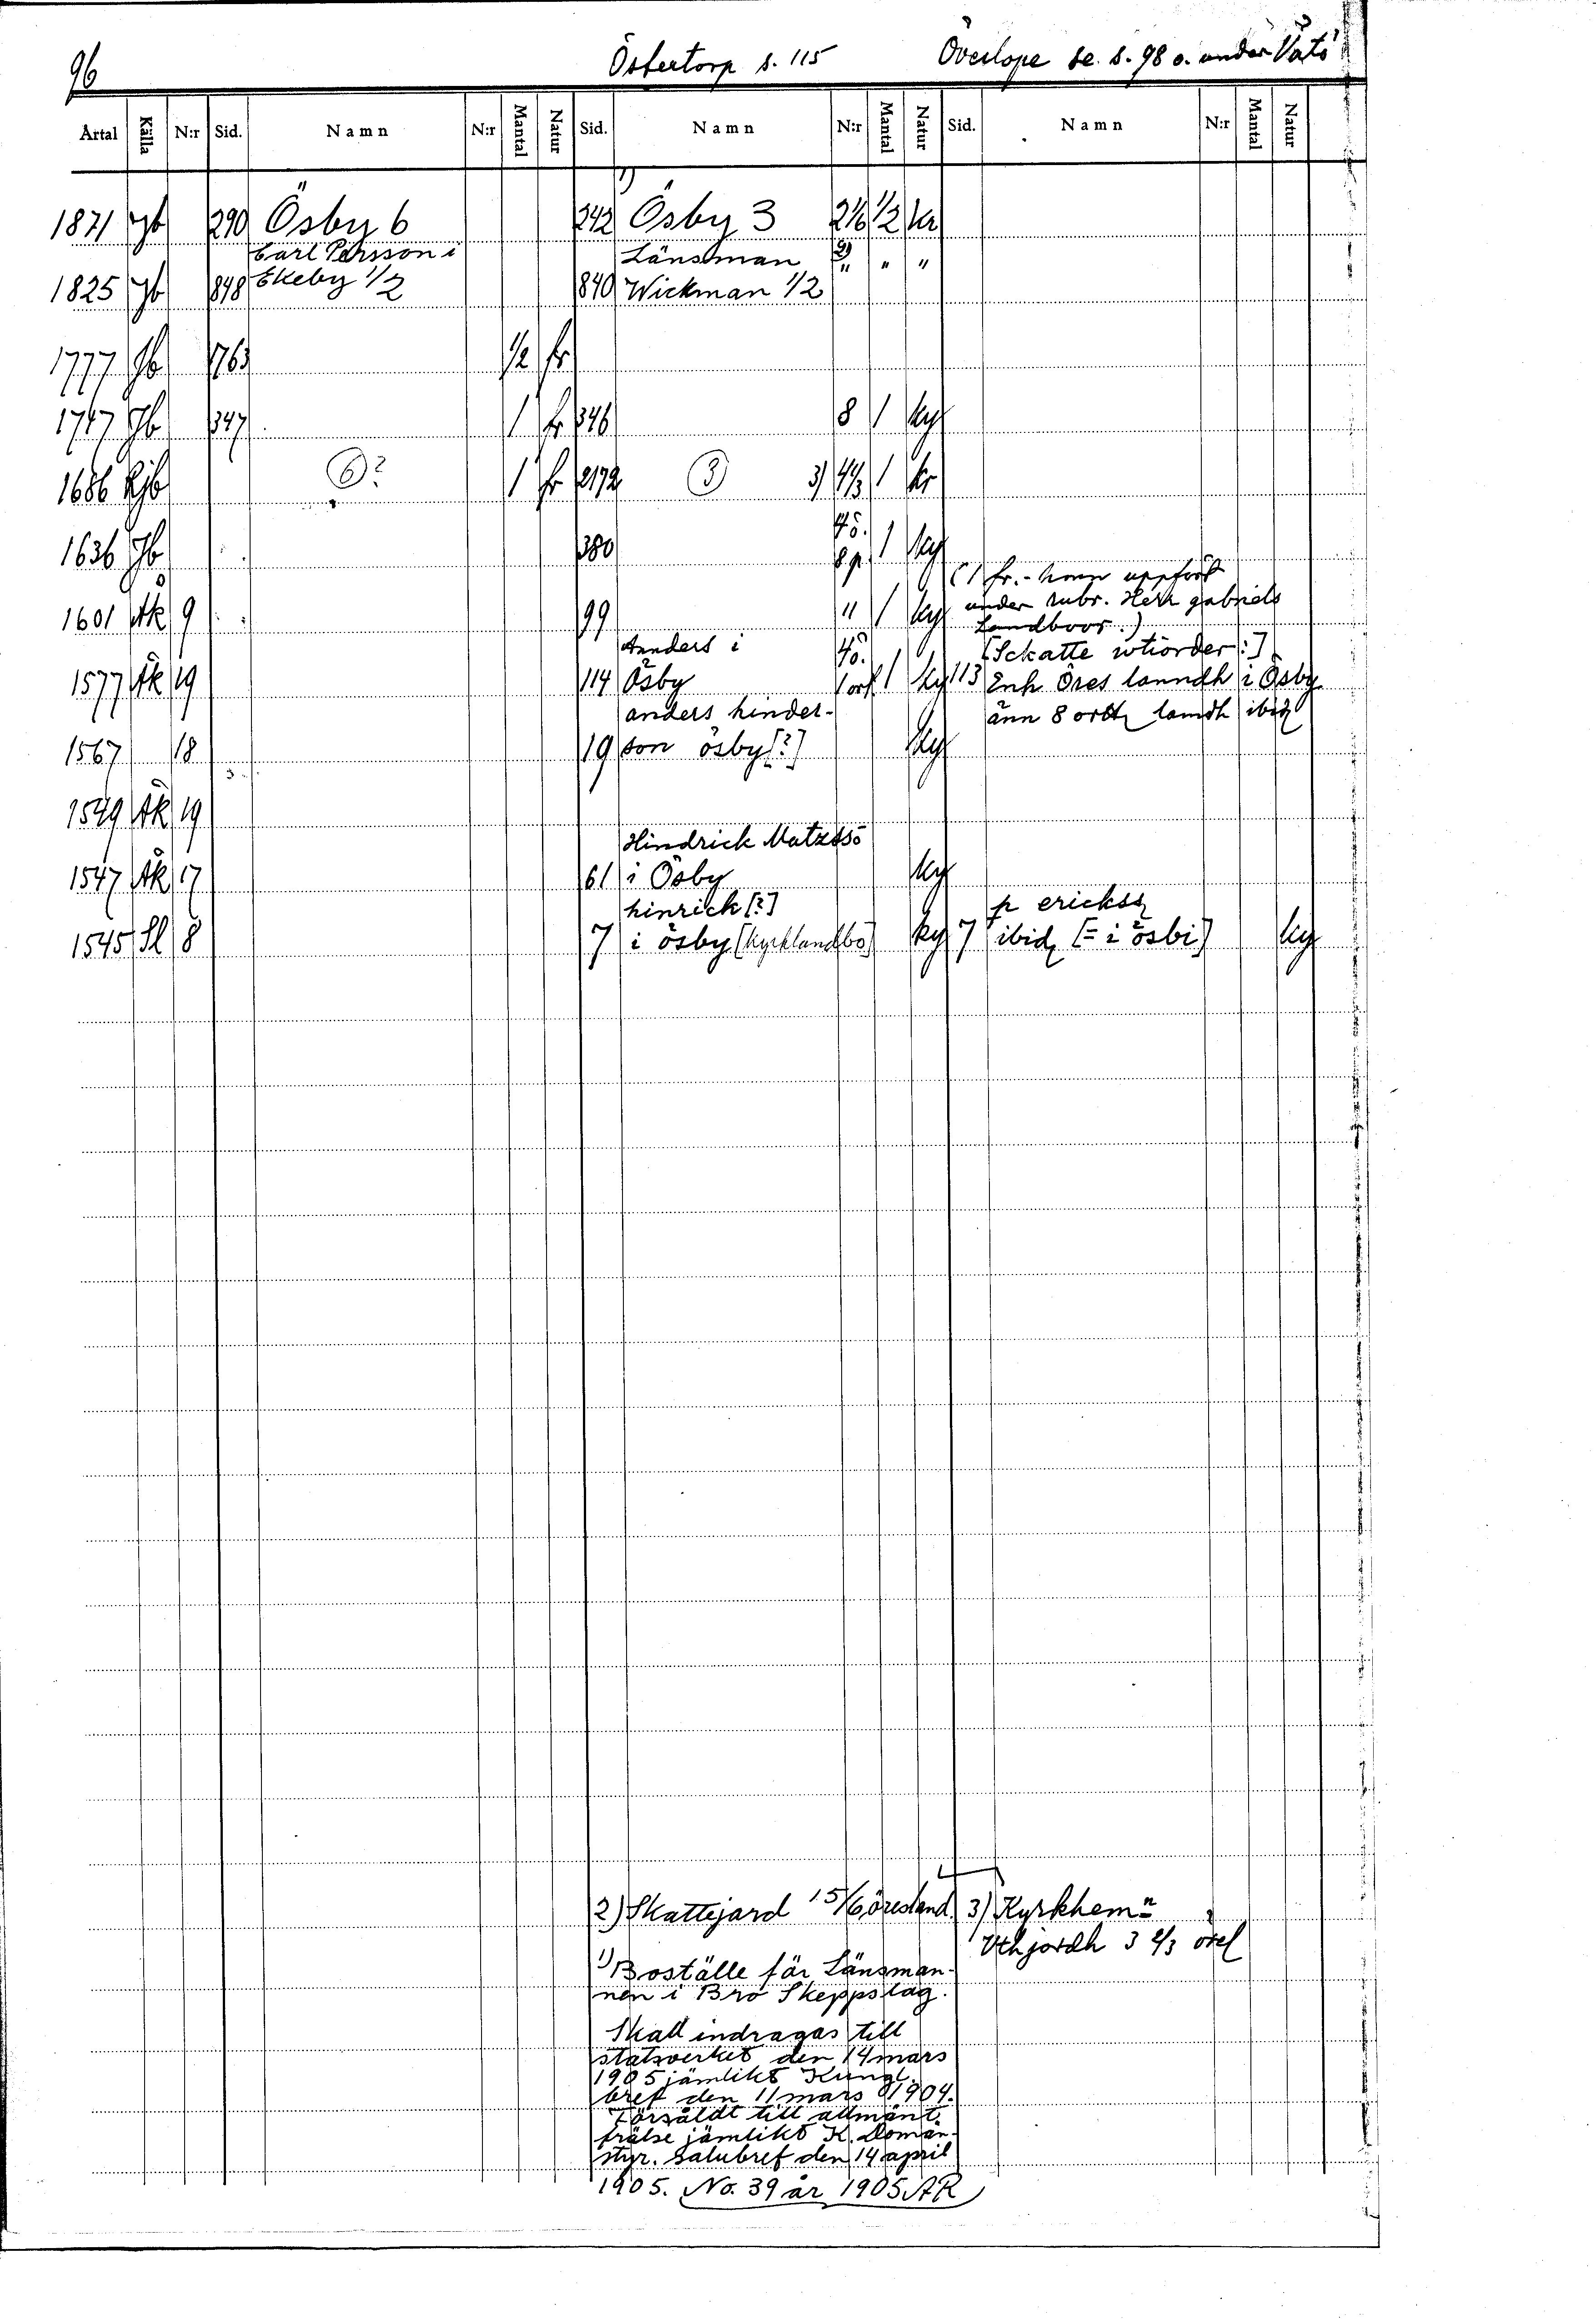 96 Östertorp s. 115 Överlope se. s. 98 o. under Vätö
Artal Källa N:r Sid. Namn N:r Mantal Natur Sid. Namn N:r Mantal Natur Sid. Namn N:r Mantal Natur
1871 Jb 290 Ösby 6 242 1) Ösby 3 2 1/6 1/2 kr
Carl Persson i Länsman 2) " " "
1825 Jb 848 Ekeby 1/2 840 Wickman 1/2
1777 Jb 1763 1/2 fr
1747 Jb 347 1 fr 346 8 1 ky
1686 Kjb 6? 1 fr 2172 3 3) 4 4/3 1 kr
1636 Jb 380 4ö. 8p. 1 ky
(1 fr.- hmn uppfört
1601 Åk 9 99 " 1 ky under rubr. Herr gabriels
Landboor.)
Anders i 4ö. [Skatte wtiorder:]
1577 Åk 19 114 Ösby 1 ort 1 ky 113 Enh Öres lanndh i Ösby
anders hinder- änn 8 ortt landh ibid
1567 18 19 son ösby [?] ky
1549 Åk 19
Hindrick Matzssö
1547 Åk 17 61 i Ösby ky
hinrick [?] p erickss
1545 Sl 8 7 i ösby [kyrklandbo] ky 7 ibid [= i ösbi] ky
2) Skattejard 1 5/6 öresland. 3) Kyrkhemn
Vthjordh 3 2/3 örel
1) Boställe för Länsman-
nen i Bro Skeppslag.
Skall indragas till
statsverket den 14 mars
1905 jämlikt Kungl.
bref den 11 mars 1904.
Försåldt till allmänt
frälse jämlikt K. Domän-
styr. salubref den 14 april
1905. No. 39 år 1905 AR